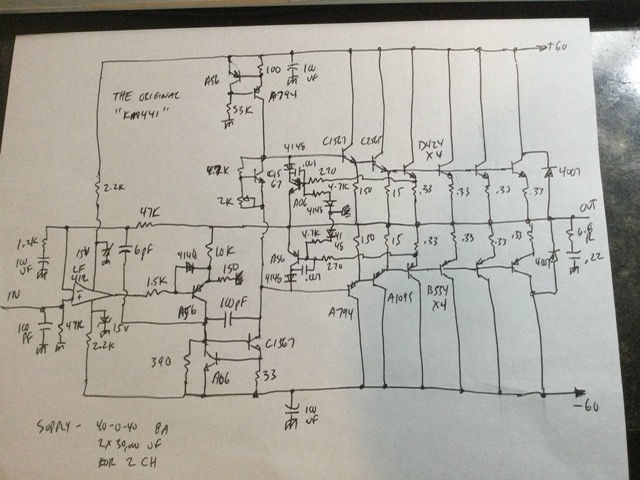 +60
THE ORIGINAL
"KA8441"
A56
100
100
UF
A794
33K
4148
.001
C1567
C2565
D424
X4
4007
4.7K
C15
67
270
2K
A06
4.7K
4148
150
15
.33
.33
.33
.33
2.2K
47K
OUT
1.2K
100
UF
15V
LF
412
6pF
4148
10K
150
A56
4.7K
41
48
4148
.001
270
150
15
.33
.33
.33
.33
4007
6.8
.22
IN
1.5K
A56
100pF
A794
A1095
B554
X4
100
PF
47K
15V
2.2K
390
A06
C1567
33
100
UF
-60
SUPPLY - 40-0-40 8A
2 X 30,000 UF
FOR 2 CH